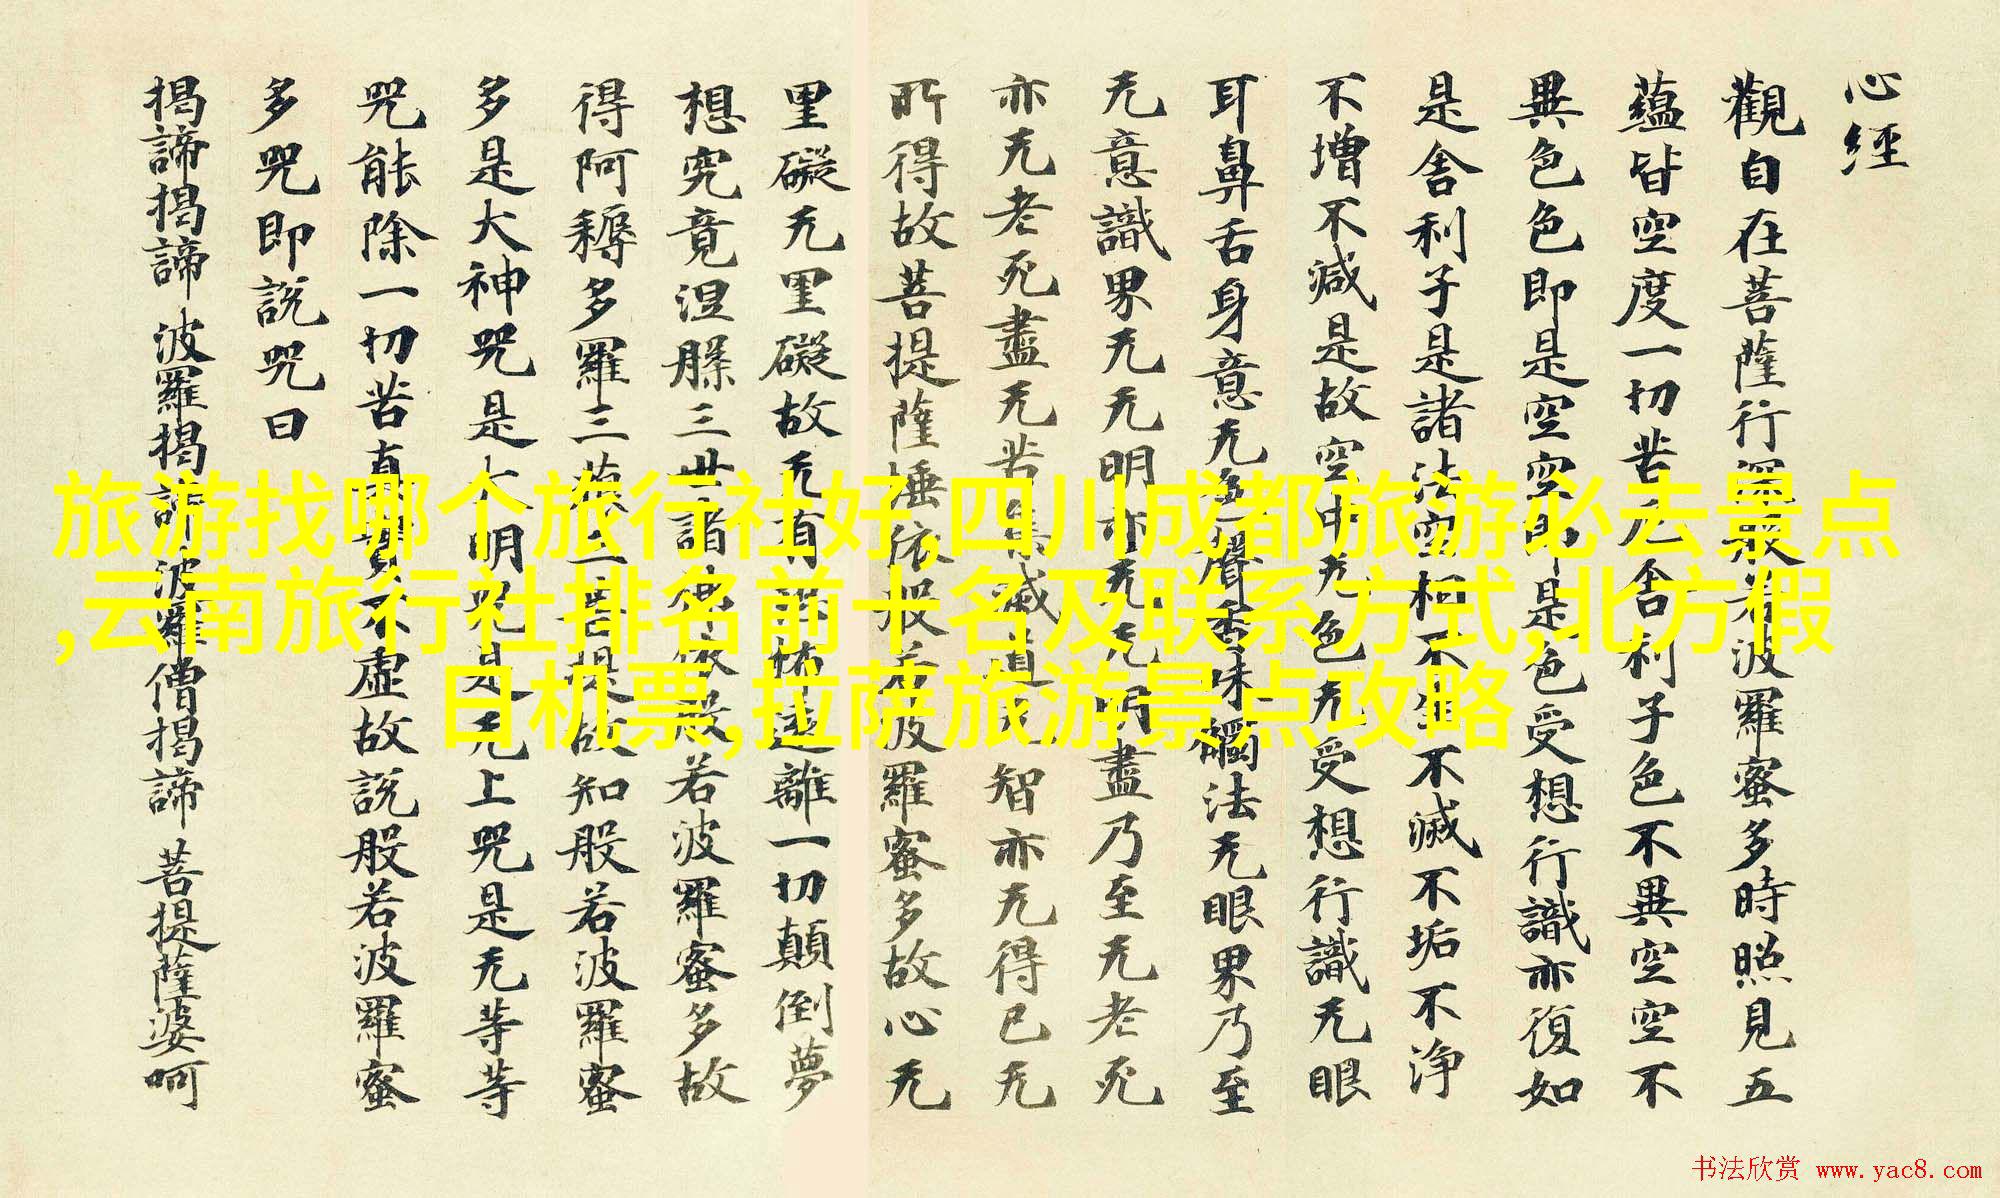 心經
觀自在菩薩行深般若波羅蜜多時照見五
蘊皆空度一切苦厄舍利子色不異空空不
異色色即是空空即是色受想行識亦復如
是舍利子是諸法空相不生不滅不垢不淨
不增不減是故空中无色无受想行識无眼
耳鼻舌身意无色聲香味觸法无眼界乃至
无意識界无无明亦无无明盡乃至无老死
亦无老死盡无苦集滅道无智亦无得已无
所得故菩提薩埵依般若波羅蜜多故心无
罣礙无罣礙故无有恐怖遠離一切顛倒夢
想究竟涅槃三世諸佛依般若波羅蜜多故
得阿耨多羅三藐三菩提故知般若波羅蜜
多是大神咒是大明咒是无上咒是无等等
咒能除一切苦真實不虛故說般若波羅蜜
多咒即說咒曰
揭諦揭諦 波羅揭諦 波羅僧揭諦 菩提薩婆呵
旅游找哪个旅行社好,四川成都旅游必去景点
,云南旅行社排名前十名及联系方式,北方假
日机票,拉萨旅游景点攻略
书法欣赏 www.yac8.com